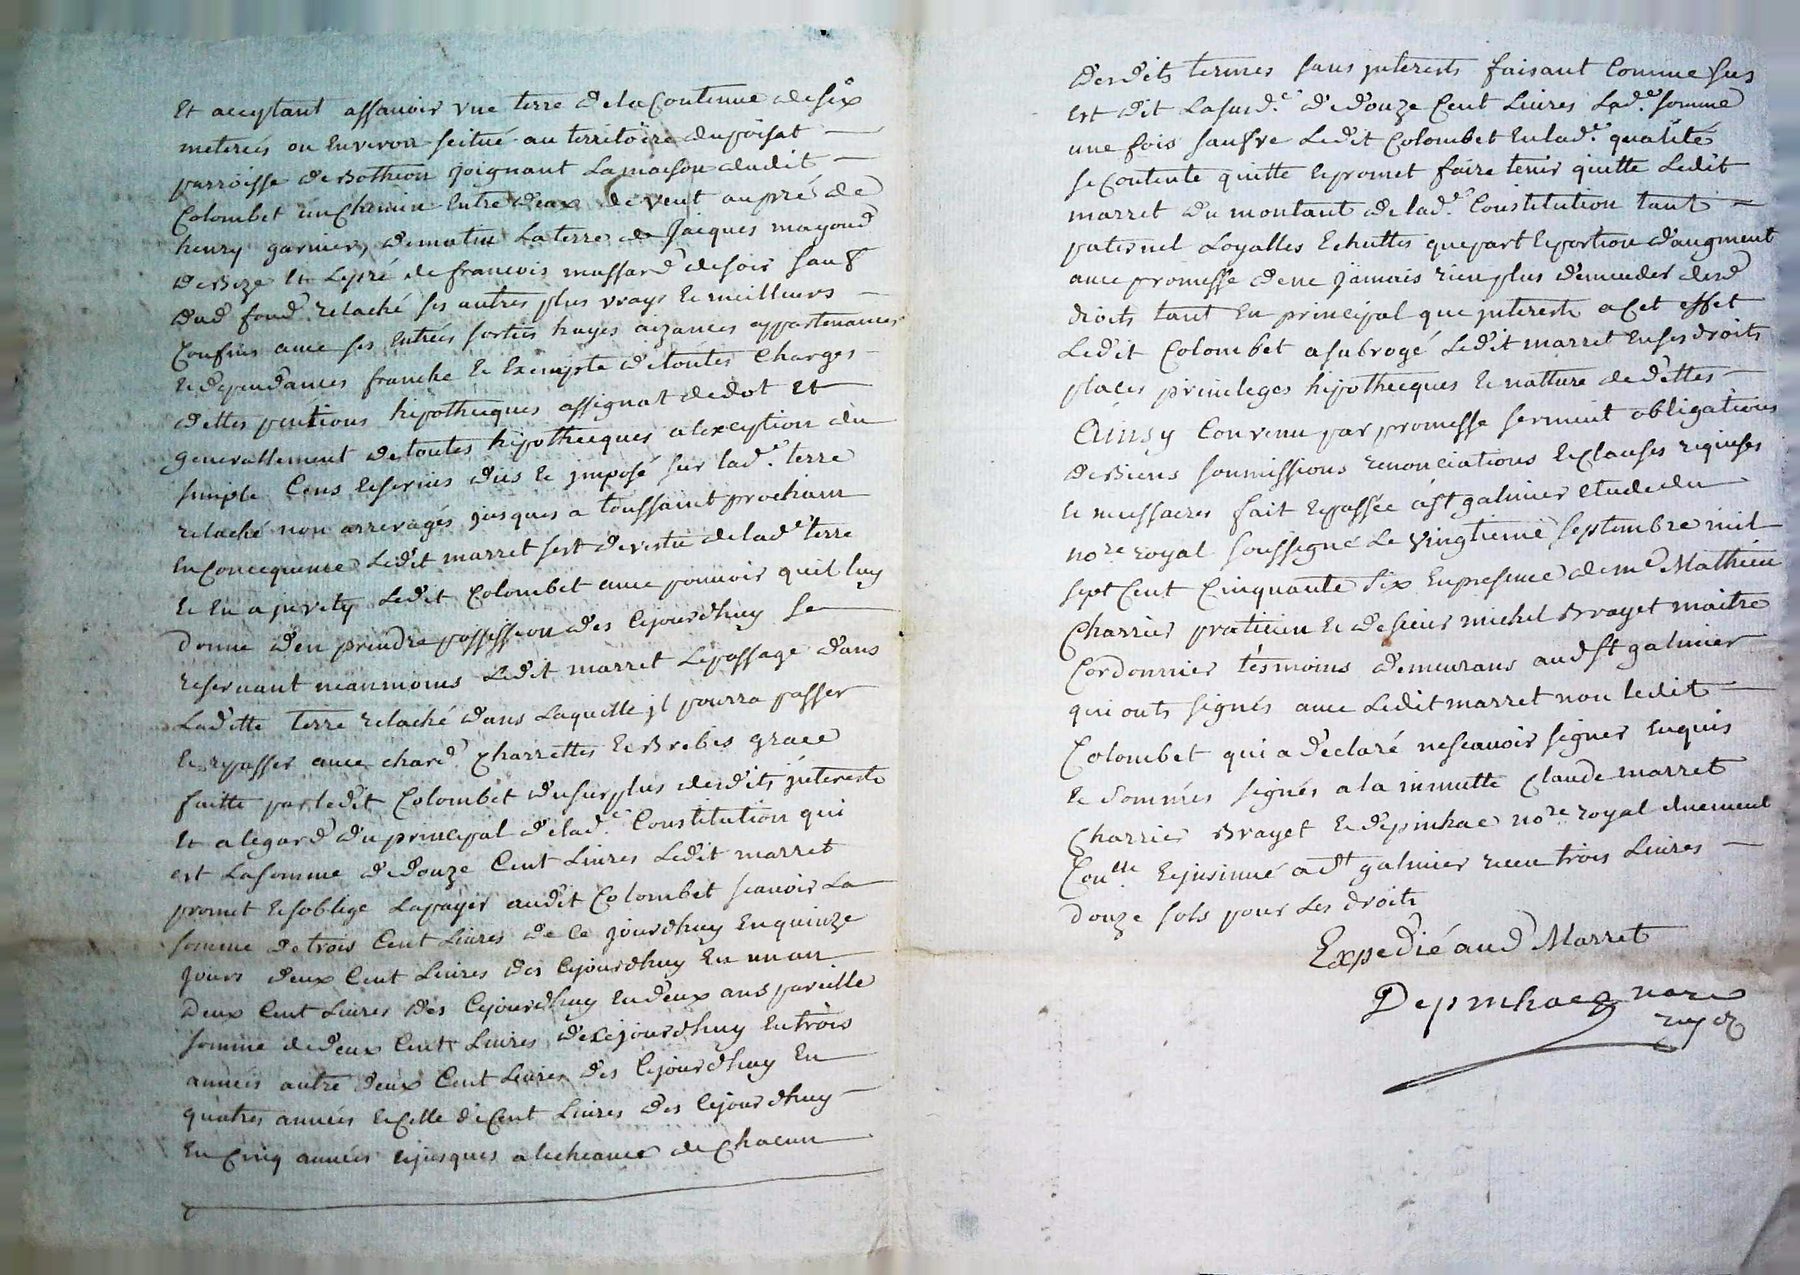 Et acceptant assavoir une terre de la Contenue de six
meterées ou Environ scitué au territoire du poisat
parroisse de Botheon joignant La maison dudit
Colombet un Chemin Entre deux de vent au pré de
henry garnier, de matin La terre de Jacques mayoud
de Bize Et Le pré de francois massard de soir sauf
dud fond relaché ses autres plus vrays Et meilleurs
Confins avec ses Entrées sorties hayes aizances appartenances
Et dependances franche Et Exempte de toutes Charges
dettes hipothecques assignat de dot Et
generallement de toutes hipothecques a lexception du
simple Cens Et servis dus Et jmposé sur lad.e terre
relaché non arreragés jusques a toussaint prochain
En Concequence Ledit marret sest devestu de lad.e terre
Et En a jnvety Ledit Colombet avec pouvoir quil luy
donne den prendre possession des Cejourdhuy se
reservant neanmoins Ledit marret Le passage dans
Laditte terre relaché dans Laquelle jl pourra passer
Et repasser avec chard Charrettes Et Brebis grace
faitte par ledit Colombet du surplus desdits jnterests
Et a legard du principal de lad.e Constitution qui
est La somme de douze Cent Livres Ledit marret
promet Et soblige La payer audit Colombet scavoir La
somme de trois Cent Livres de Ce jourdhuy En quinze
jours deux Cent Livres des Cejourdhuy En un an
Deux Cent Livres des Cejourdhuy En deux ans pareille
somme de deux Cent Livres de Cejourdhuy En trois
années autre deux Cent Livres des Cejourdhuy En
quatres années Et Celle de Cent Livres des Cejourdhuy
En Cinq années Et jusques a lecheance de Chacun
Desdits termes sans jnterests faisant Comme sus
est dit La susd.e de douze Cent Livres Lad.e somme
une fois Ledit Colombet En lad.e qualité
se Contente quitte Et promet faire tenir quitte Ledit
marret du montant de lad.e Constitution tant
paternel Loyalles Echuttes que part Et portion d'augment
avec promesse de ne jamais rien plus demander desd
droits tant En principal que jnterests a Cet effet
Ledit Colombet a subrogé Ledit marret En ses droits
places privileges hipothecques Et natture de dettes
Ainsy Convenu par promesse serment obligations
de Biens soumissions renonciations Et Clauses requises
Et nessaires fait Et passée a st galmier Etude du
no.re royal soussigné Le vingtieme septembre mil
sept Cent Cinquante six En presence de me Mathieu
Charrier praticien Et de sieur michel Brayet maitre
Cordonnier tesmoins demeurans aud st galmier
qui onts signés avec Ledit marret non ledit
Colombet qui a declaré ne scavoir signer Enquis
Et sommés signés a la minutte Claude marret
Charrier Brayet Et depinhac no.re royal duement
Con.lle Et jnsinué a st galmier recu trois Livres
douze sols pour Les droits
Expedié aud Marret
Depinhac nore